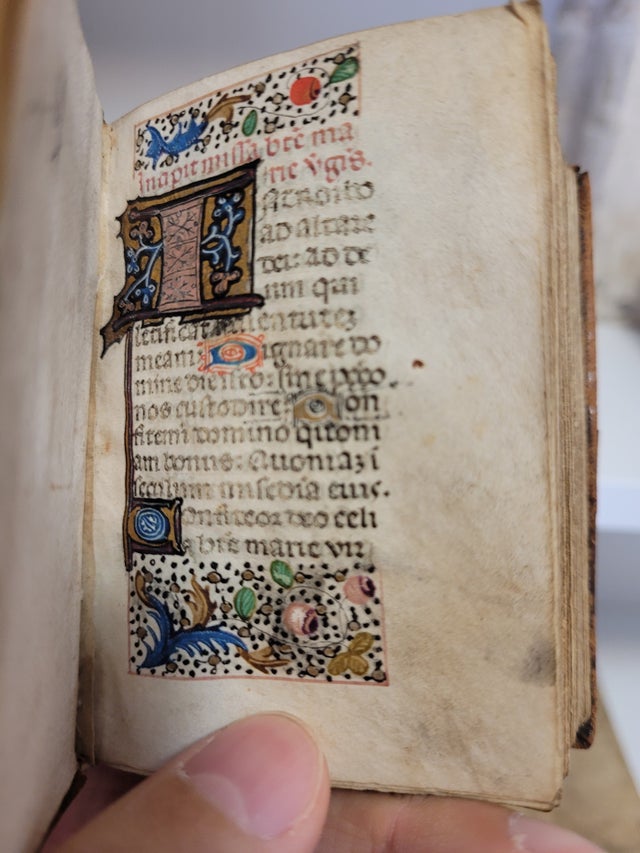 Incipit missa bte ma
rie v'gis.
Introibo
ad altare
dei: ad de
um qui
letificat iuuentutez
meam: Dignare do
mine die isto: sine pcc̄o
nos custodire. Con
fitemi domino qm̄oni
am bonus: Quoniaz i
seculum misedia eius.
Confiteor deo celi
bte marie vir